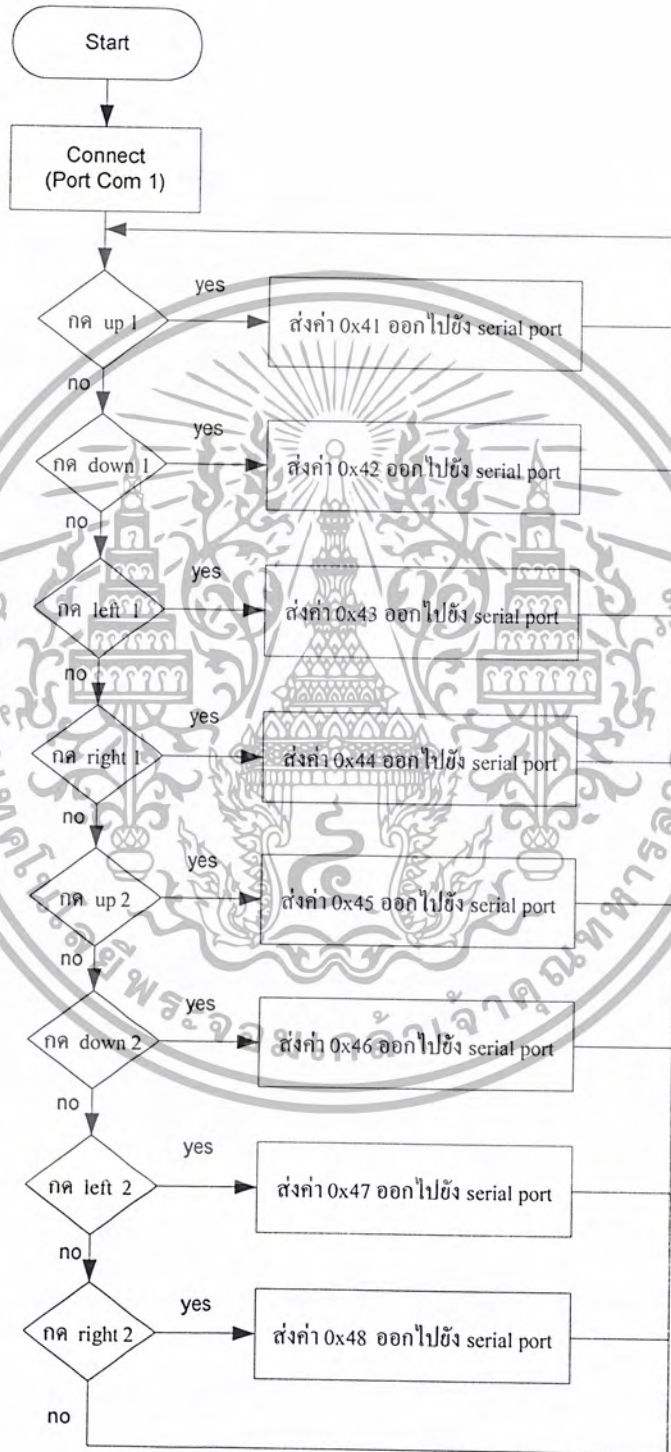 Start
Connect
(Port Com 1)
กด up 1
yes
ส่งค่า 0x41 ออกไปยัง serial port
no
กด down 1
yes
ส่งค่า 0x42 ออกไปยัง serial port
no
กด left 1
yes
ส่งค่า 0x43 ออกไปยัง serial port
no
กด right 1
yes
ส่งค่า 0x44 ออกไปยัง serial port
no
กด up 2
yes
ส่งค่า 0x45 ออกไปยัง serial port
no
กด down 2
yes
ส่งค่า 0x46 ออกไปยัง serial port
no
กด left 2
yes
ส่งค่า 0x47 ออกไปยัง serial port
no
กด right 2
yes
ส่งค่า 0x48 ออกไปยัง serial port
no
พระจอมเกล้าเจ้าคุณทหาร